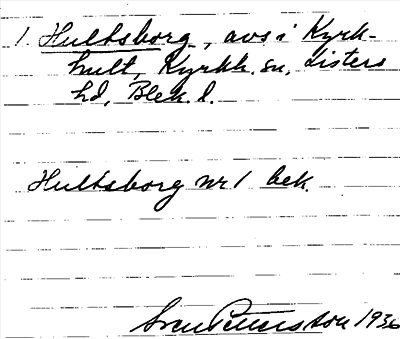 1. Hultsborg, avs. i Kyrk-
hult, Kyrkh. sn, Listers
hd, Blek. l.
Hultsborg nr 1 bek.
Sven Pettersson 1936